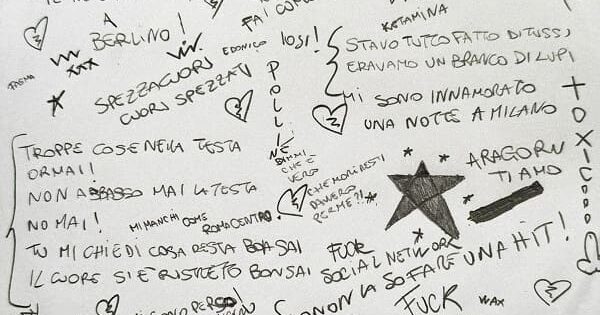 A
BERLINO!
FAI
KETAMINA
EDONICO
IOSI!
STAVO TUTTO FATTO DI TUSSI,
ERAVAMO UN BRANCO DI LUPI
SPEZZACUORI
CUORI SPEZZATI
POLLINE
MI SONO INNAMORATO
UNA NOTTE A MILANO
TOXIC
TROPPE COSE NELLA TESTA
ORMAI!
NON ABBASSO MAI LA TESTA
NO MAI!
MI MANCHI COME
ROMA CENTRO
TU MI CHIEDI COSA RESTA BONSAI
IL CUORE SI È RISTRETTO BONSAI
DIMMI
CHE È
VERO
CHE MORIRESTI
DAVVERO
PER ME?!
ARAGORN
TI AMO
FUCK
SOCIAL NETWORK
NON LA SO FARE UNA HIT!
MI SONO PERSO!
FUCK
WAX